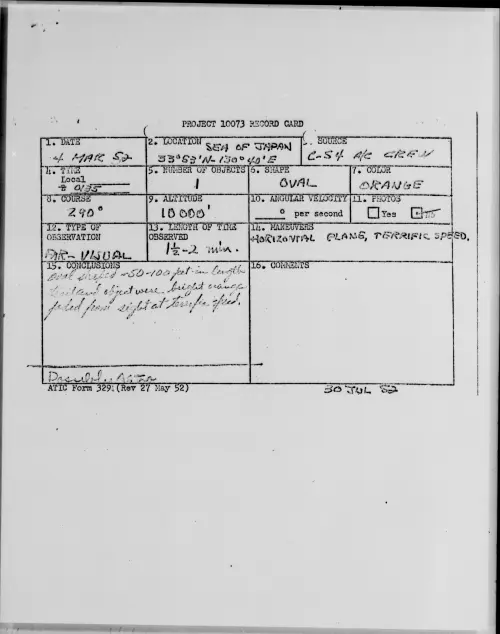 PROJECT 10073 RECORD CARD
1. DATE
4 MAR 52
2. LOCATION SEA OF JAPAN
33°53'N-130°40'E
SOURCE
C-54 A/C CREW
4. TIME
Local
0135
5. NUMBER OF OBJECTS
1
6. SHAPE
OVAL
7. COLOR
ORANGE
8. COURSE
290°
9. ALTITUDE
10 000'
10. ANGULAR VELOCITY
° per second
11. PHOTOS
Yes
12. TYPE OF
OBSERVATION
AIR-VISUAL
13. LENGTH OF TIME
OBSERVED
1½-2 min.
14. MANEUVERS
HORIZONTAL PLANE, TERRIFIC SPEED.
15. CONCLUSIONS
oval shaped -50-100 feet in length
and object were bright orange
faded from sight at terrific speed.
16. COMMENTS
ATIC Form 329 (Rev 27 May 52)
30 JUL 52